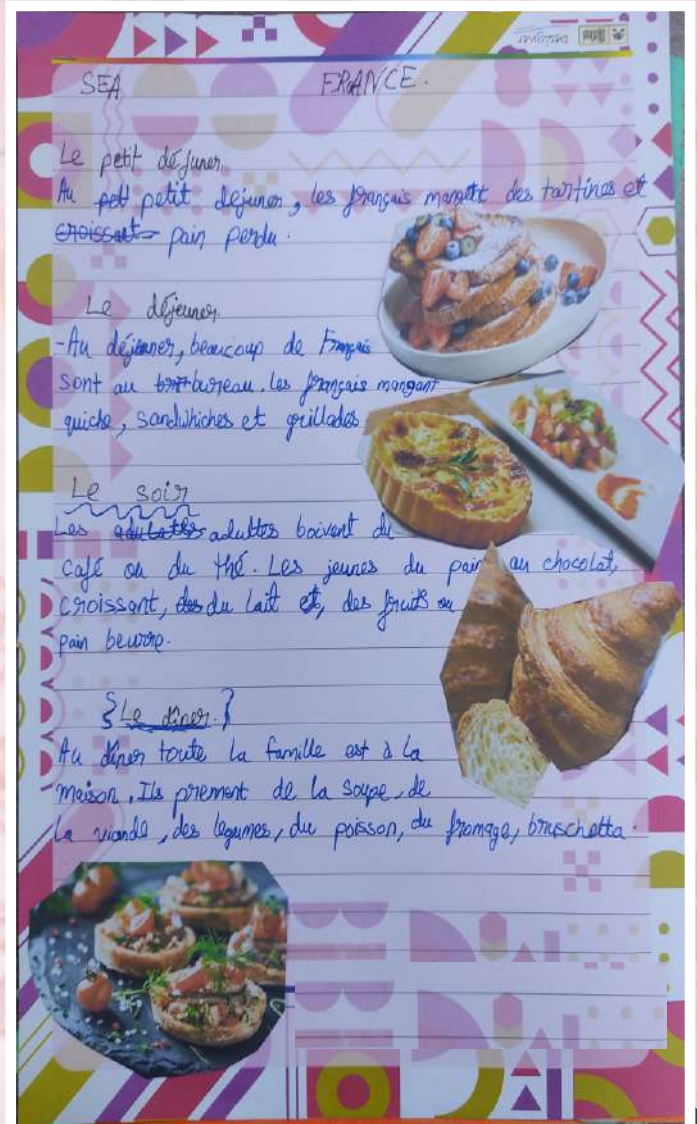 Designer
SEA FRANCE.
Le petit déjuner
Au pet petit dejuner, les français mangett des tartines et
croissant pain perdu.
Le déjeuner
-Au déjeuner, beaucoup de Français
sont au bureau. Les français mangent
quiche, sandwhiches et grillades
Le soir
Les adultes boivent du
café ou du thé. Les jeunes du pain au chocolat,
croissant, des du lait et, des fruits ou
pain beurre.
Le dîner.
Au dîner toute la famille est à la
maison. Ils prement de la soupe, de
la viande, des légumes, du poisson, du fromage, bruschetta.